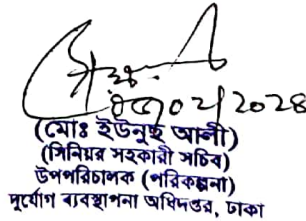 (মোঃ ইউনুছ আলী)
(সিনিয়র সহকারী সচিব)
উপপরিচালক (পরিকল্পনা)
দুর্যোগ ব্যবস্থাপনা অধিদপ্তর, ঢাকা